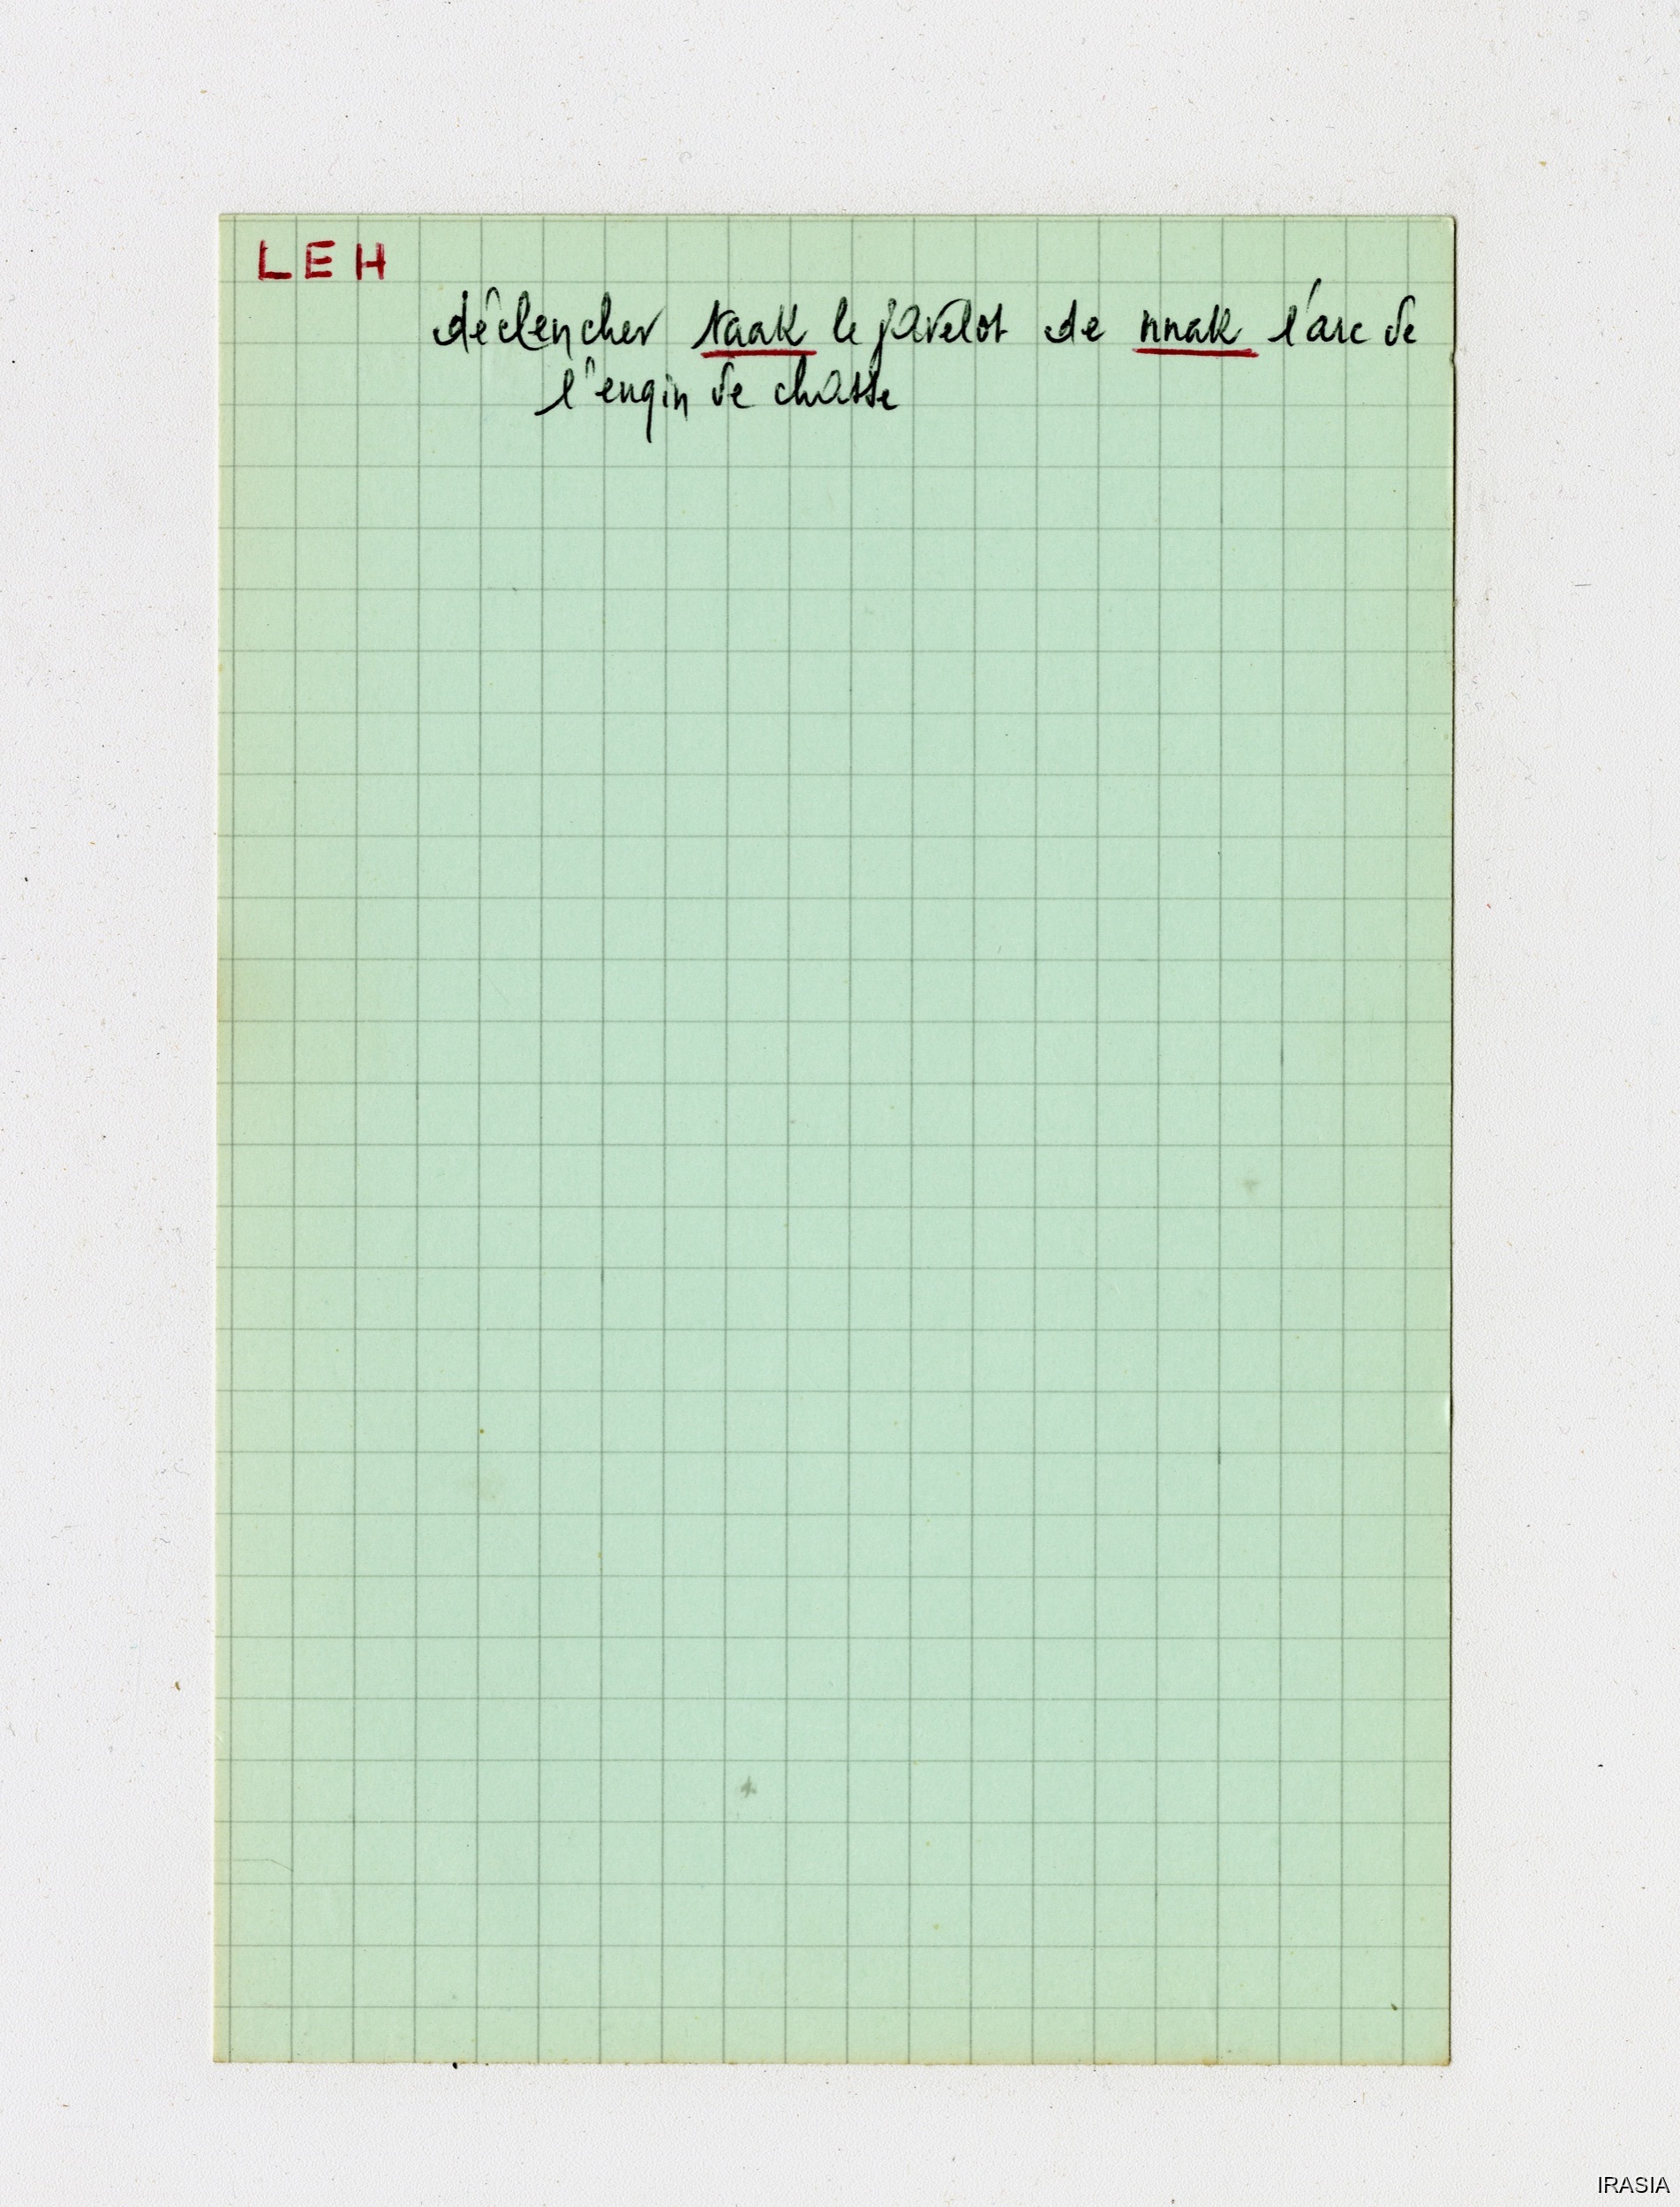 LEH
déclencher naak le javelot de nnak l'arc de
l'engin de chasse
IRASIA